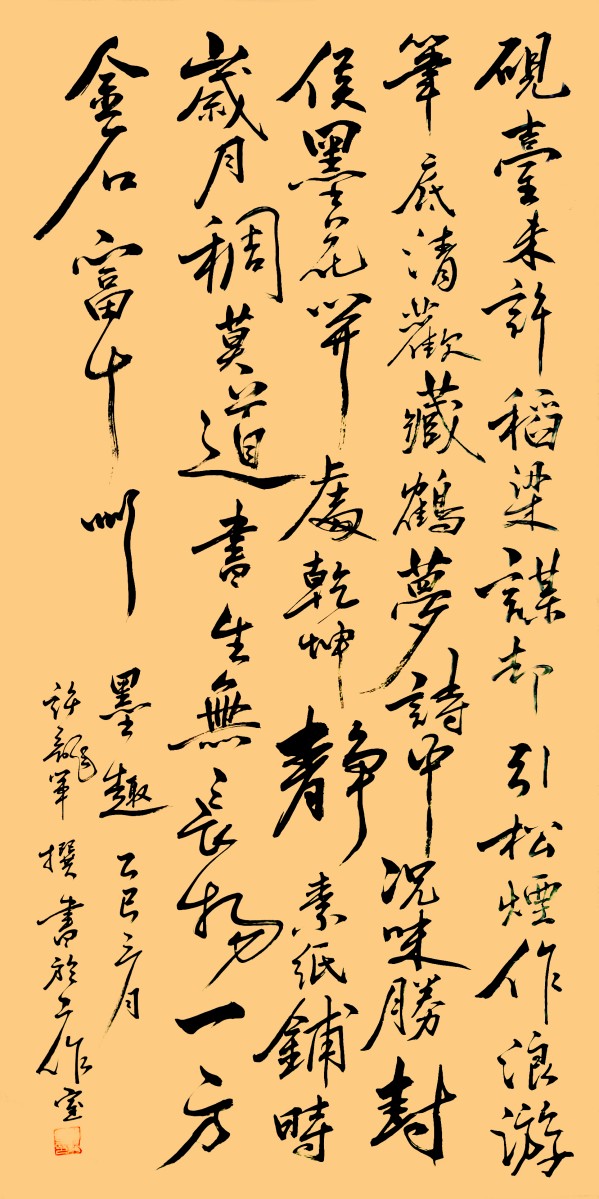 硯臺未許稻粱謀却引松煙作浪游
筆底清歡藏鶴夢詩中況味勝封
侯墨花開處乾坤靜素紙鋪時
歲月稠莫道書生無長物一方
金石富十州
墨趣乙巳三月
許龍軍撰書於工作室